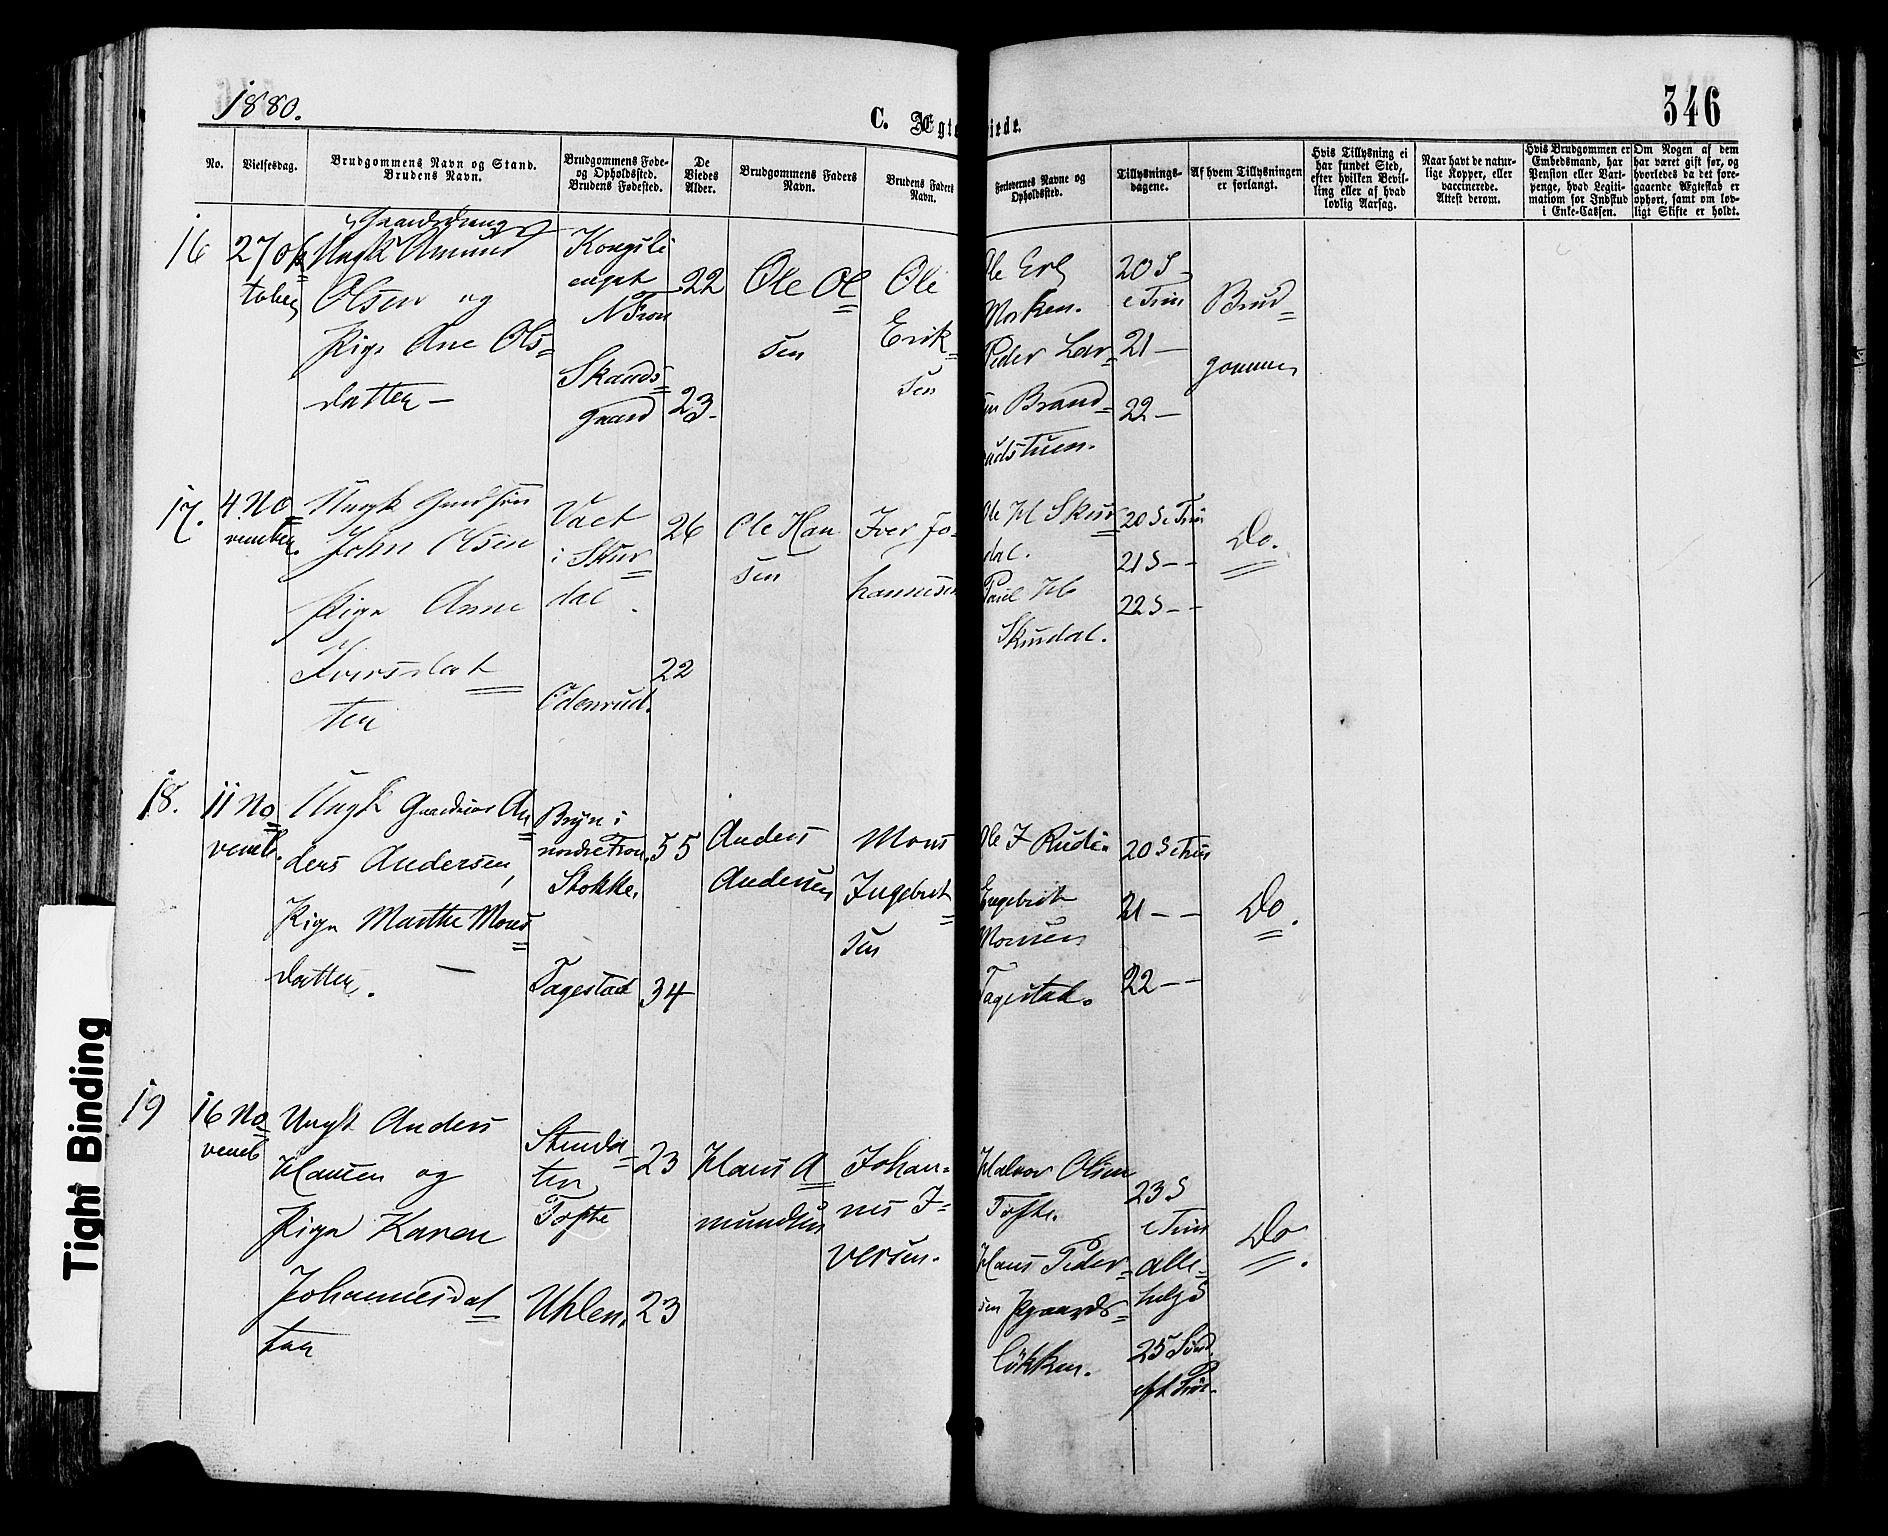 1880.
C. Ægteviede.
346
No.
Vielsesdag.
Brudgommens Navn og Stand.
Brudens Navn.
Brudgommens Føde-
og Opholdssted.
Brudens Fødested.
De
Viedes
Alder.
Brudgommens Faders
Navn.
Brudens Faders
Navn.
Forlovernes Navne og
Opholdssted.
Tillysnings-
dagene.
Af hvem Tillysningen
er forlangt.
Hvis Tillysning ei
har fundet Sted,
efter hvilken Bevil-
ling eller af hvad
lovlig Aarsag.
Naar havt de natur-
lige Kopper, eller
vaccinerede.
Attest derom.
Hvis Brudgommen er
Embedsmand, har
Pension eller Vart-
penge, hvad Legiti-
mation for Indskud
i Enke-Cassen.
Om Nogen af dem
har været gift før, og
hvorledes da det fore-
gaaende Ægteskab er
ophørt, samt om lov-
ligt Skifte er holdt.
16
27 Ok
tober
Ungk Amund
Olsen og
Pige Ane Ols-
datter –
Kongsli
N Fron
Skaads
gaard
22
23.
Ole Ol
sen
Ole
Erik-
sen
Morken.
Peder Lar-
Brand-
udstuen.
20 S
e Trin
21 –
22 –
Brud
gommen
17.
4 No
vember.
Ungk
John Olsen
Pige Anne
Iversdat
ter
i Skur
dal
Odenrud.
26
22
Ole Han
sen
Iver Jo-
hannesen
Ole H Skur
dal.
Paul H
Skurdal.
20 S e Trin
21 S – –
22 S – –
Do.
18.
11 No
vemb.
Ungk Gaardmd An
ders Andersen,
Pige Marthe Mons
datter. –
Bryn i
nordre Fron
Stokke.
Tagestad
55
34
Anders
Andersen
Mons
Ingebret
sen
Ole J Rudi.
Engebret
Monsen
Tagestad.
20 S e Trin
21 – –
22 – –
Do.
19
16 No
vemb
Ungk Anders
Hansen og
Pige Karen
Johannesdat
ter
Tofte
Uhlen.
23
23
Hans A
mundsen
Johan-
nes I-
versen.
Halvor Olsen
Tofte.
Hans Peder-
sen
løkken.
23 S
e Trin
Alle-
helgs
25 Sønd.
eft Trin.
Do.
Tight Binding